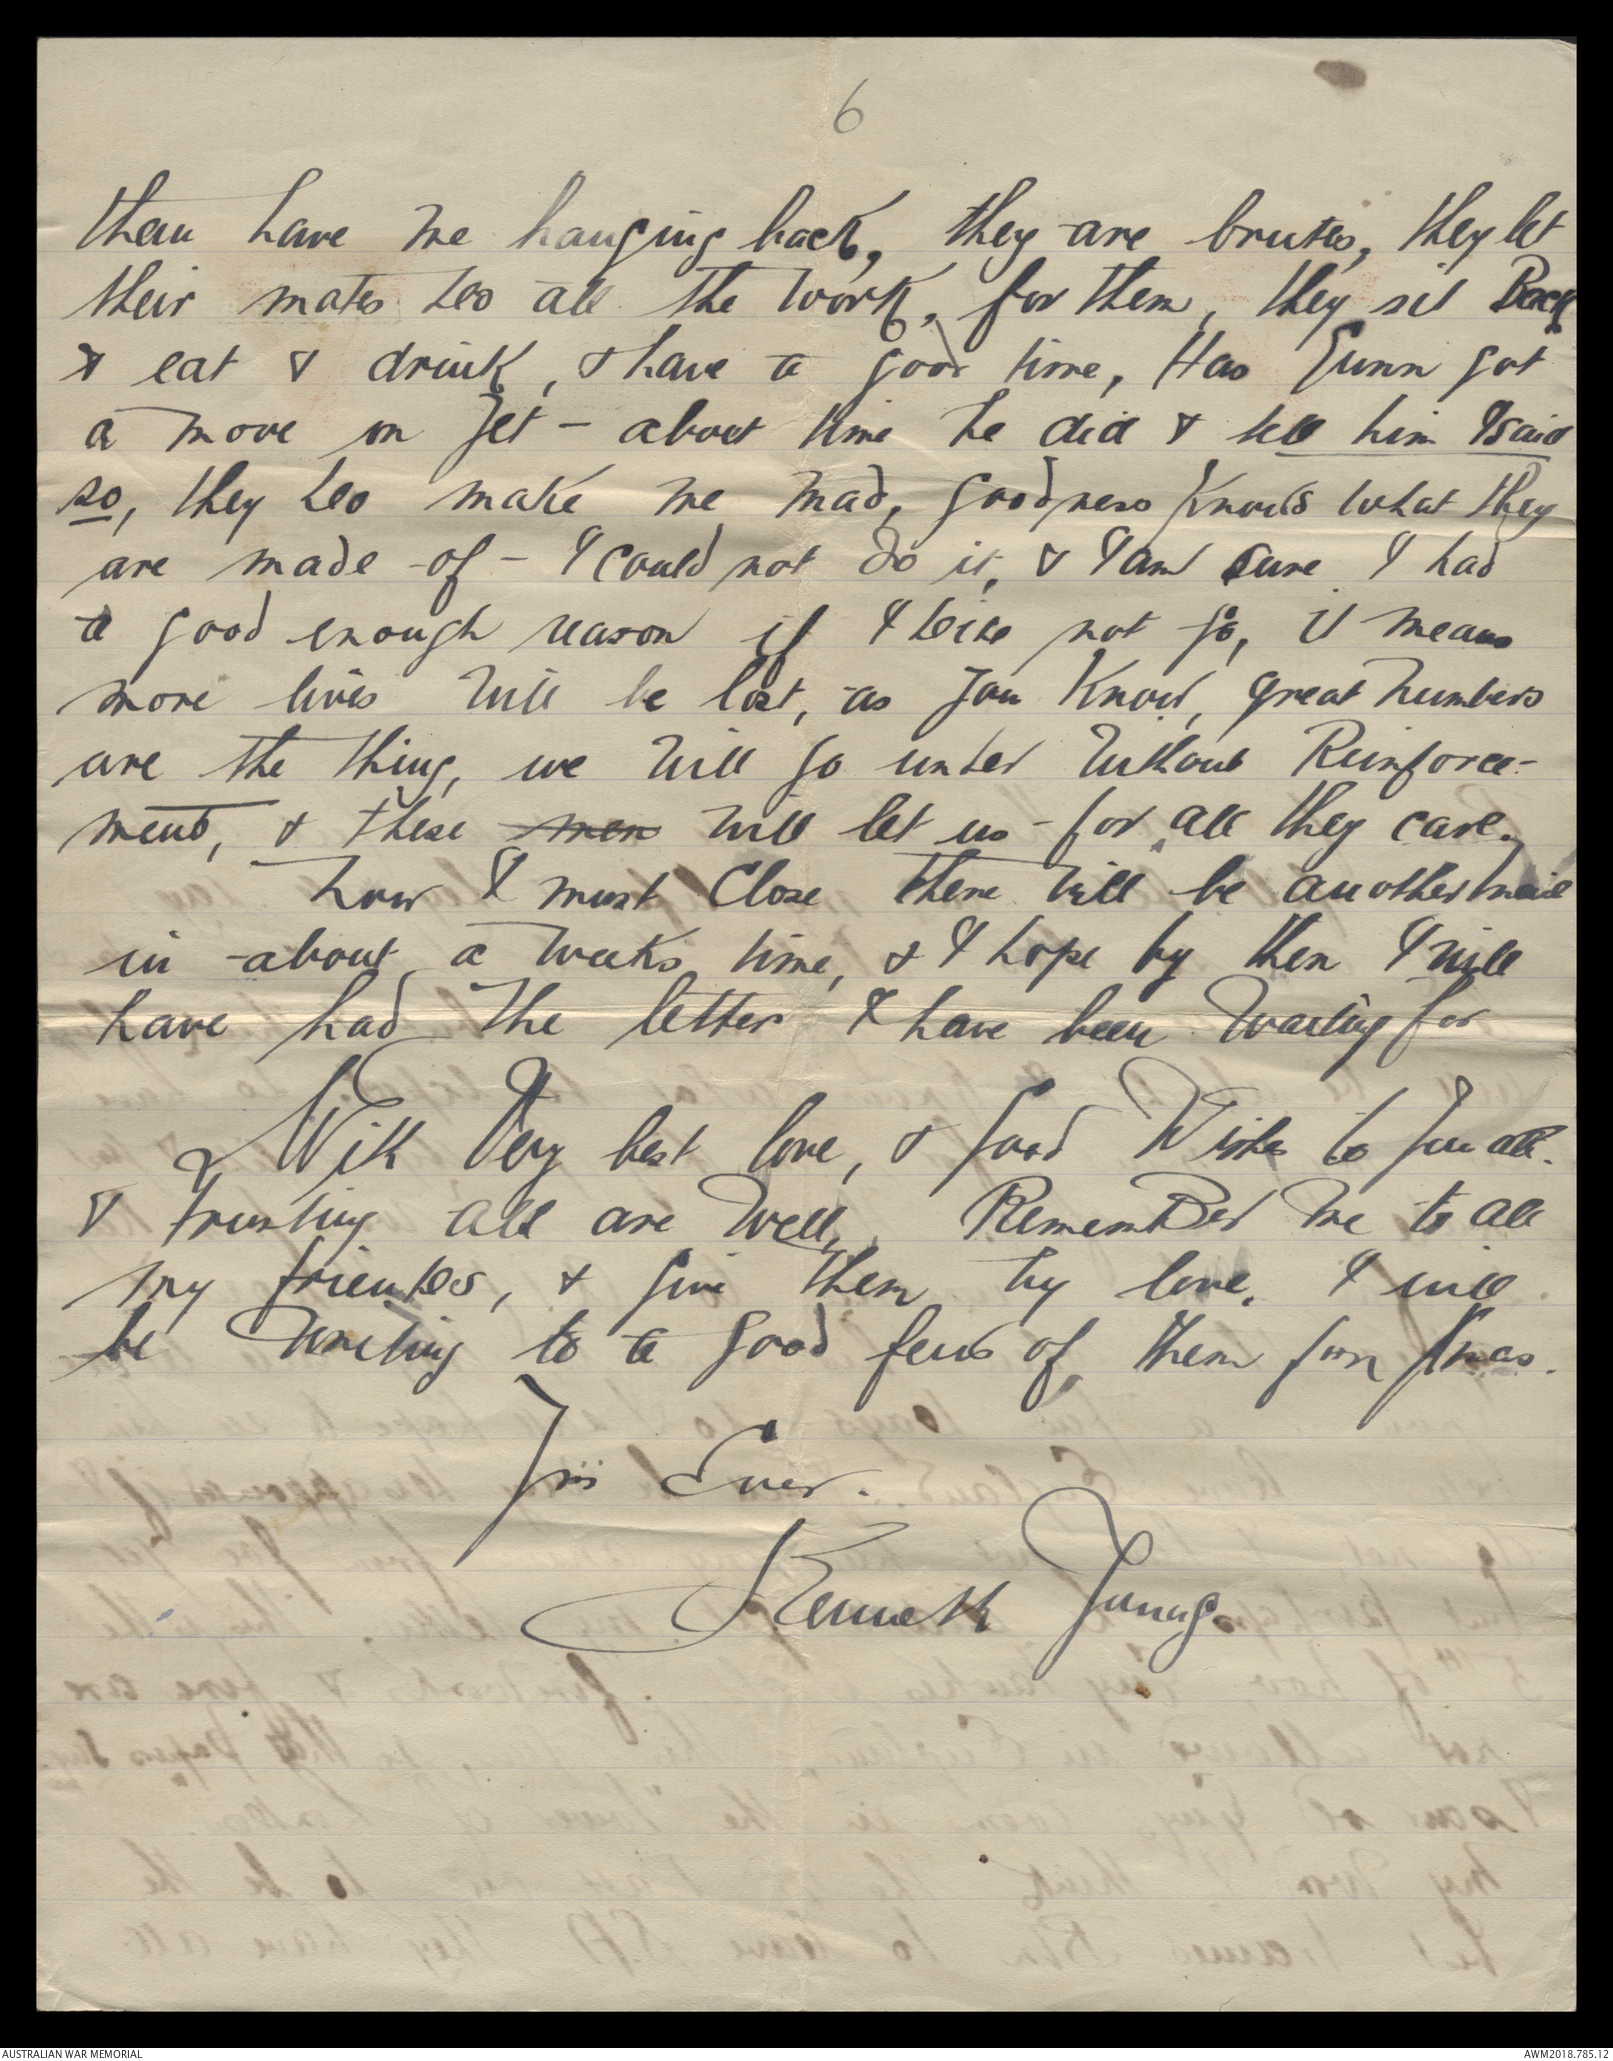 6
than have me hanging back, they are brutes, they let
their mates do all the work, for them, they sit Back
& eat & drink, & have a good time, Has Gunn got
a move on yet - about time he did & tell him I said
so, they do make me mad, goodness knows what they
are made of - I could not do it, & I am sure I had
a good enough reason if I did not go, it means
more lives will be lost, as you know, great numbers
are the thing, we will go under without Reinforce-
ment, & these men will let us for all they care.
Now I must Close there will be another mail
in about a weeks time, & I hope by then I will
have had the letter I have been waiting for
With Very best love, & good Wishes to you all.
& trusting all are well, Remember me to all
my friends, & give them my love, I will
be writing to a good few of them for Xmas.
Yrs Ever.
Kenneth Young.
AUSTRALIAN WAR MEMORIAL
AWM2018.785.12